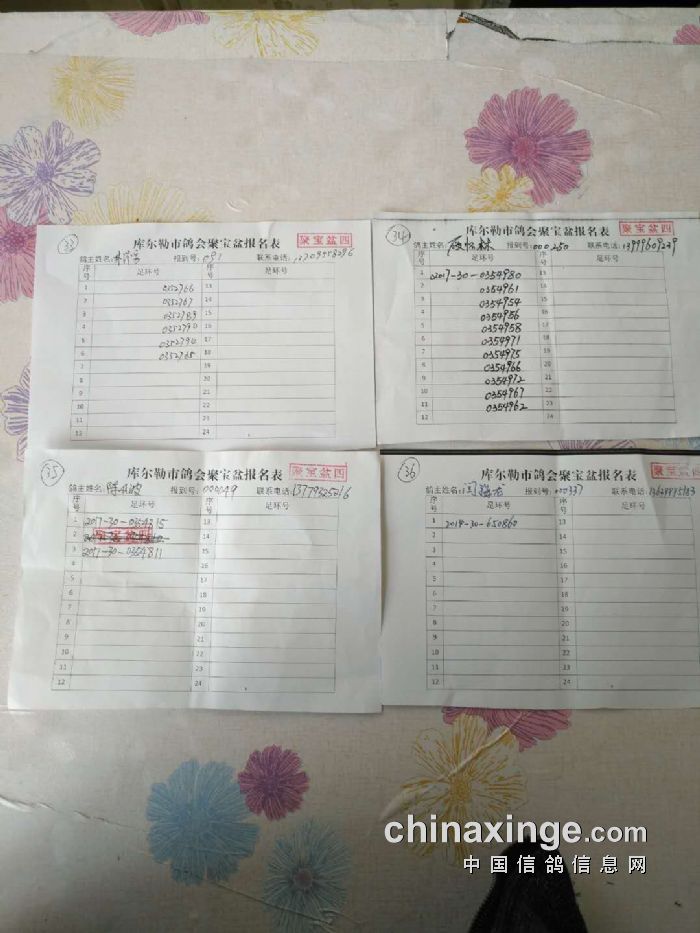 33
库尔勒市鸽会聚宝盆报名表
聚宝盆四
鸽主姓名: 报到号: 091 联系电话:
序号 足环号 序号 足环号
1 0352766 13
2 0352767 14
3 0352789 15
4 0352790 16
5 0352794 17
6 0352765 18
7 19
8 20
9 21
10 22
11 23
12 24
34
库尔勒市鸽会聚宝盆报名表
聚宝盆四
鸽主姓名: 报到号: 000250 联系电话: 13999609239
序号 足环号 序号 足环号
1 2017-30-0354980 13
2 0354961 14
3 0354954 15
4 0354956 16
5 0354958 17
6 0354971 18
7 0354975 19
8 0354966 20
9 0354972 21
10 0354967 22
11 0354962 23
12 24
35
库尔勒市鸽会聚宝盆报名表
聚宝盆四
鸽主姓名: 报到号: 000049 联系电话:
序号 足环号 序号 足环号
1 2017-30-0354815 13
2 聚宝盆四 14
3 2017-30-0354811 15
4 16
5 17
6 18
7 19
8 20
9 21
10 22
11 23
12 24
36
库尔勒市鸽会聚宝盆报名表
聚宝盆四
鸽主姓名: 报到号: 000337 联系电话:
序号 足环号 序号 足环号
1 2018-30-650860 13
2 14
3 15
4 16
5 17
6 18
7 19
8 20
9 21
10 22
11 23
12 24
chinaxinge.com
中国信鸽信息网